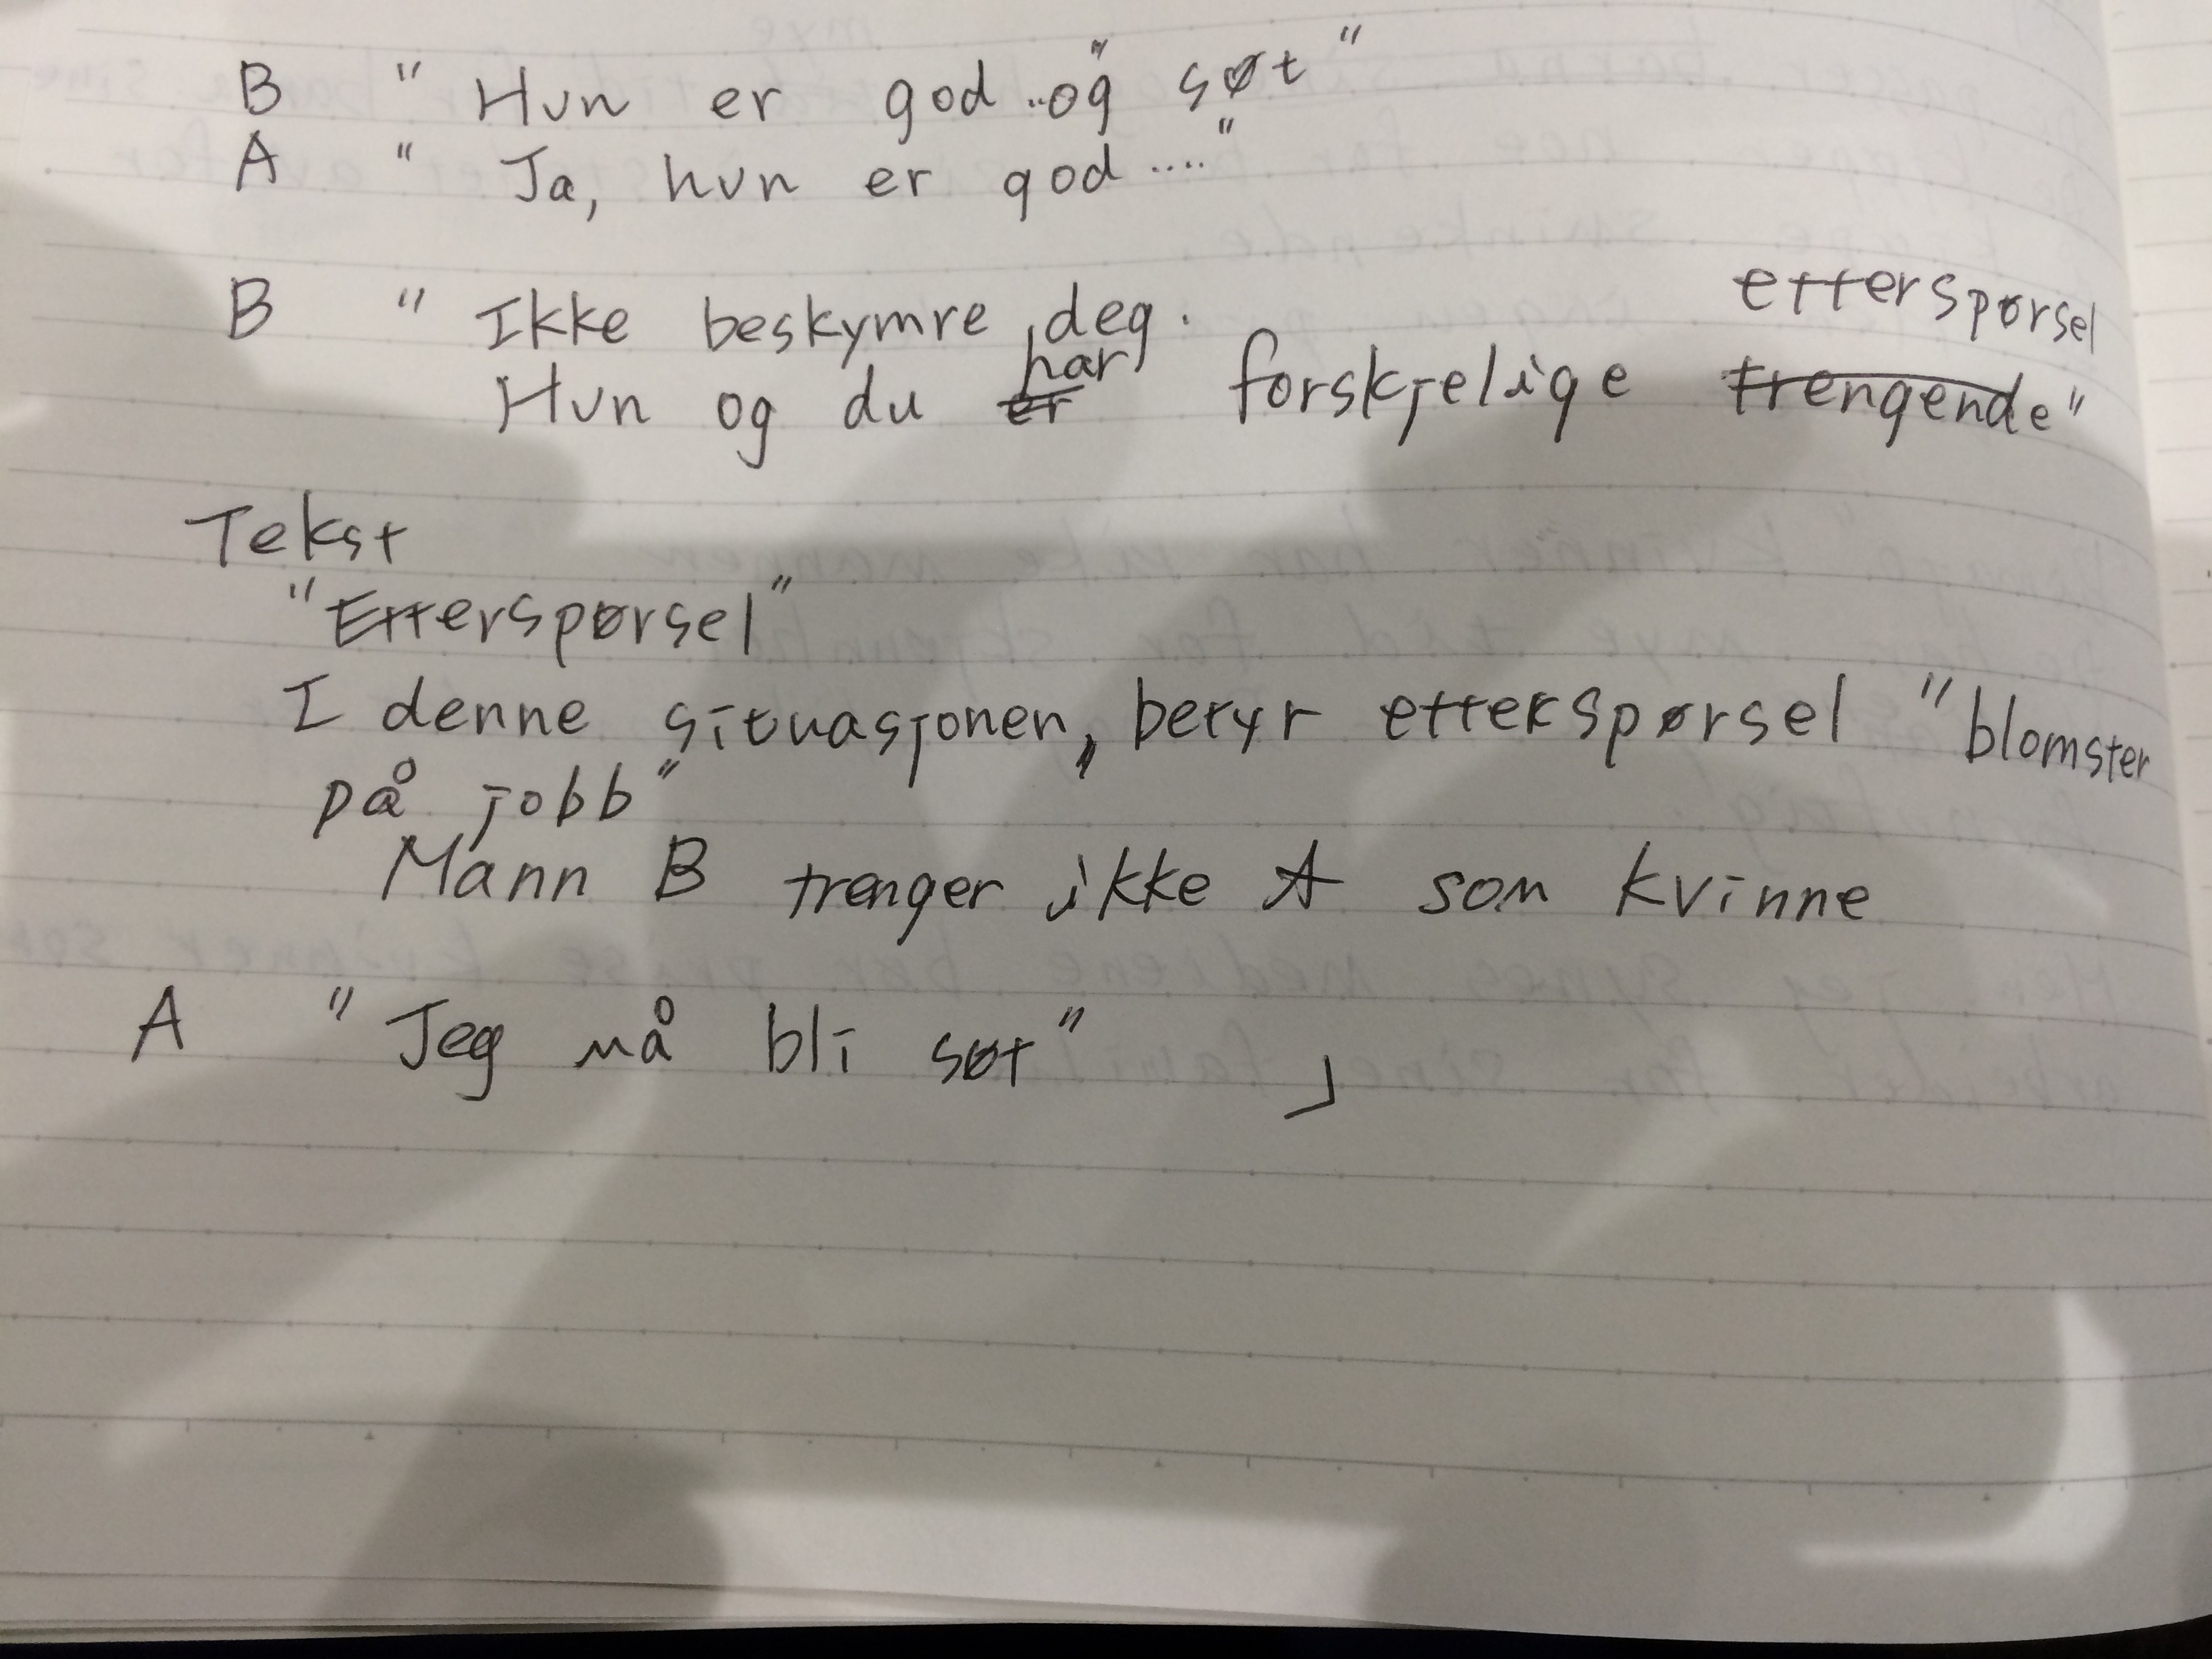 B " Hun er god .. "og søt "
A " Ja, hun er god ...."
B " Ikke beskymre deg.
etterspørsel
har
Hun og du er forskjelige trengende"
Tekst
"Etterspørsel"
I denne situasjonen, betyr etterspørsel "blomster
på jobb"
Mann B trenger ikke A som kvinne
A " Jeg må bli søt" 」